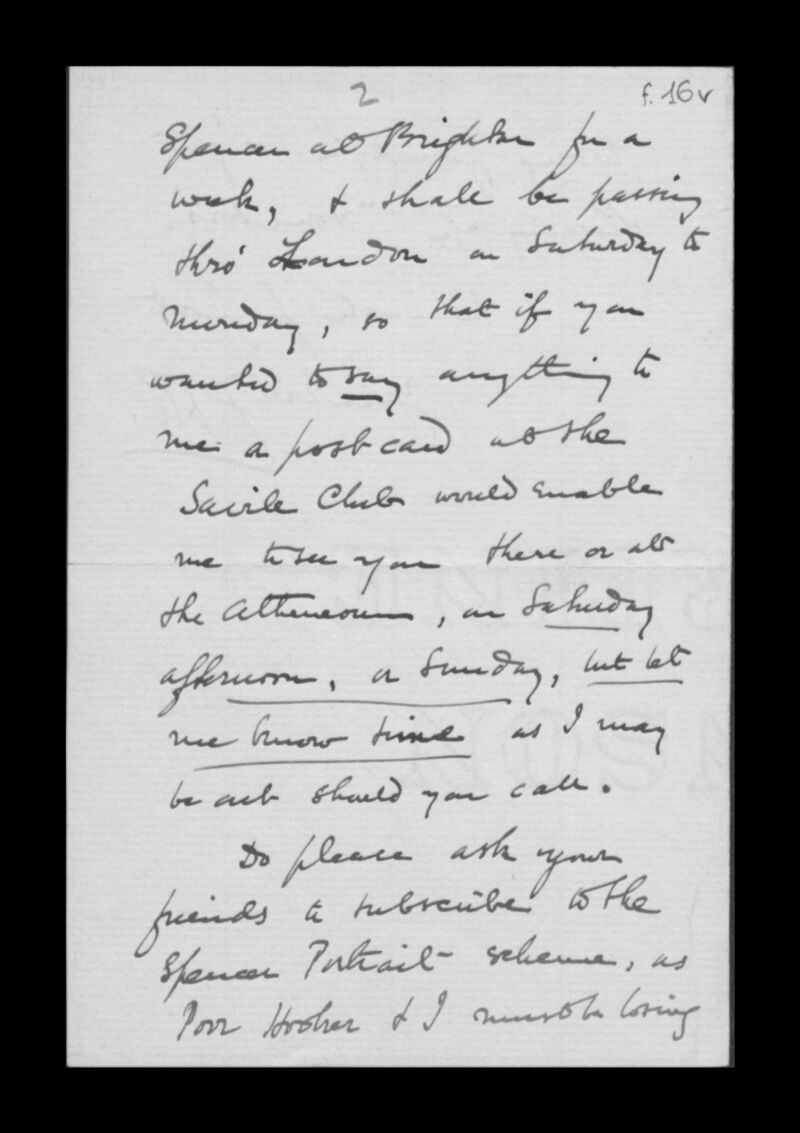 2
f. 16v
Spencer at Brighton for a
week, & shall be passing
thro' London on Saturday to
Monday, so that if you
wanted to say anything to
me a post card at the
Savile Club would enable
me to see you there or at
the Atheneoum, on Saturday
afternoon, or Sunday, but let
me know time as I may
be out should you call.
Do please ask your
friends to subscribe to the
Spencer Portrait scheme, as
Poor Hooker & I must be losing